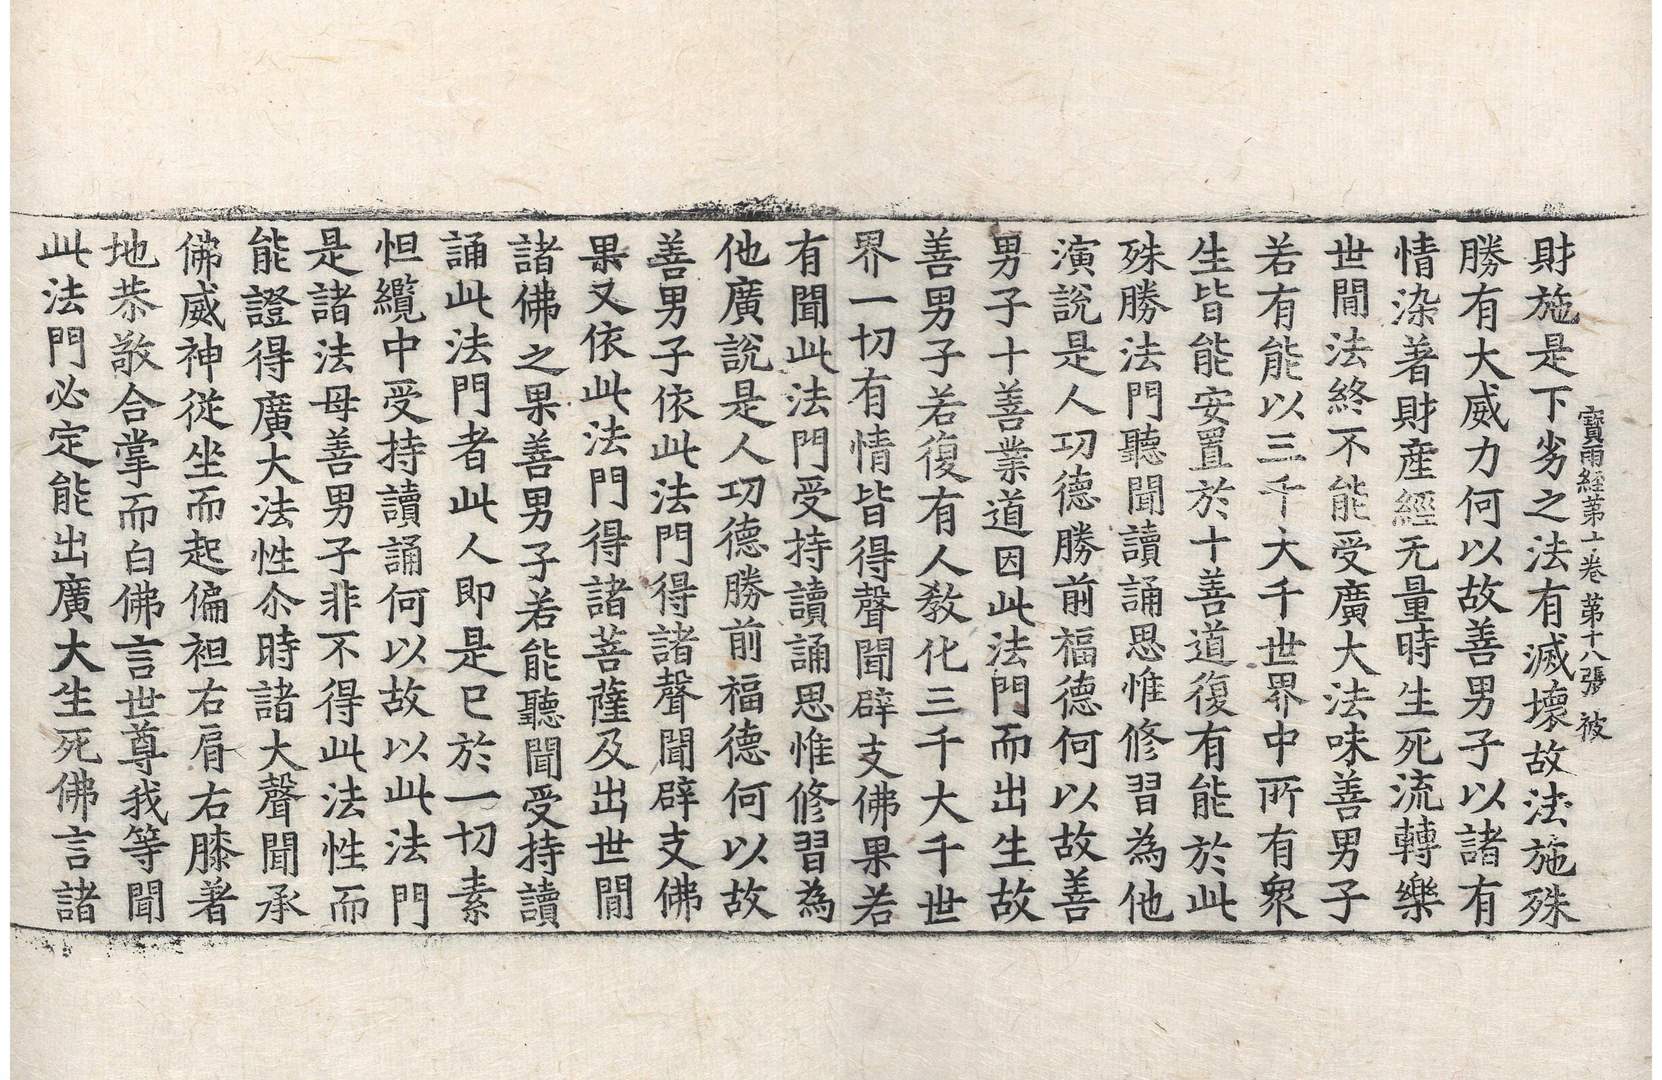 寶雨經第十卷 第十八張 被
財施是下劣之法有滅壞故法施殊
勝有大威力何以故善男子以諸有
情染著財産經无量時生死流轉樂
世間法終不能受廣大法味善男子
若有能以三千大千世界中所有衆
生皆能安置於十善道復有能於此
殊勝法門聽聞讀誦思惟修習為他
演說是人功德勝前福德何以故善
男子十善業道因此法門而出生故
善男子若復有人敎化三千大千世
界一切有情皆得聲聞辟支佛果若
有聞此法門受持讀誦思惟修習為
他廣說是人功德勝前福德何以故
善男子依此法門得諸聲聞辟支佛
果又依此法門得諸菩薩及出世間
諸佛之果善男子若能聽聞受持讀
誦此法門者此人即是已於一切素
怛纜中受持讀誦何以故以此法門
是諸法母善男子非不得此法性而
能證得廣大法性尒時諸大聲聞承
佛威神從坐而起偏袒右肩右膝著
地恭敬合掌而白佛言世尊我等聞
此法門必定能出廣大生死佛言諸